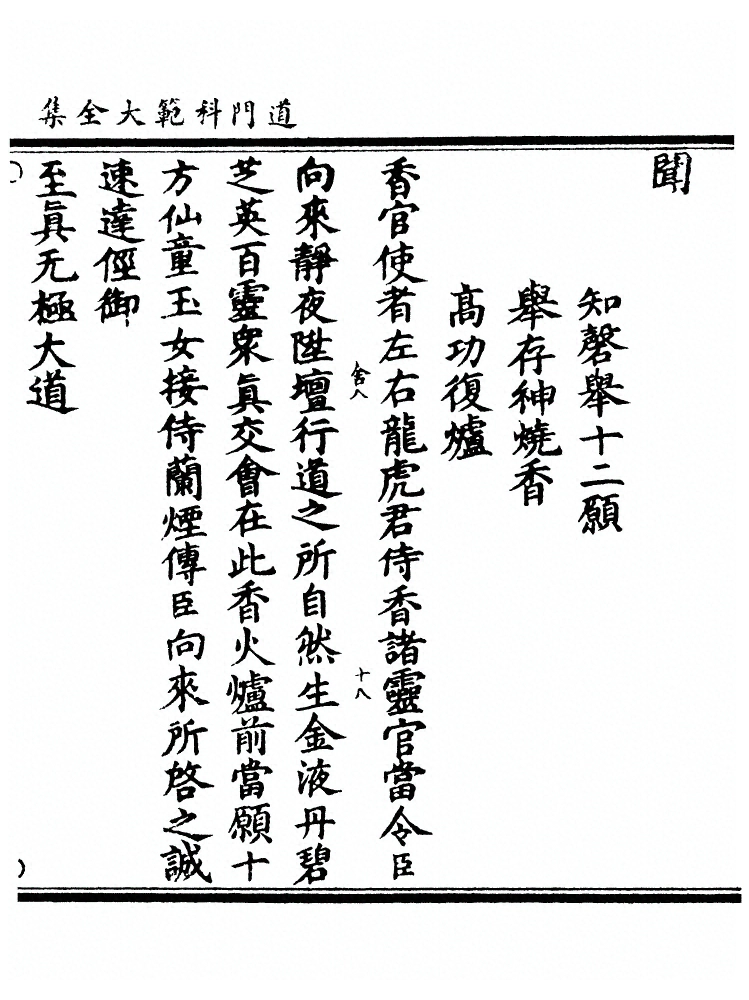 道門科範大全集
聞
知磬舉十二願
舉存神燒香
高功復爐
香官使者左右龍虎君侍香諸靈官當令臣
舍八
十八
向來靜夜陞壇行道之所自然生金液丹碧
芝英百靈衆眞交會在此香火爐前當願十
方仙童玉女接侍蘭煙傳臣向來所啓之誠
速達徑御
至眞无極大道